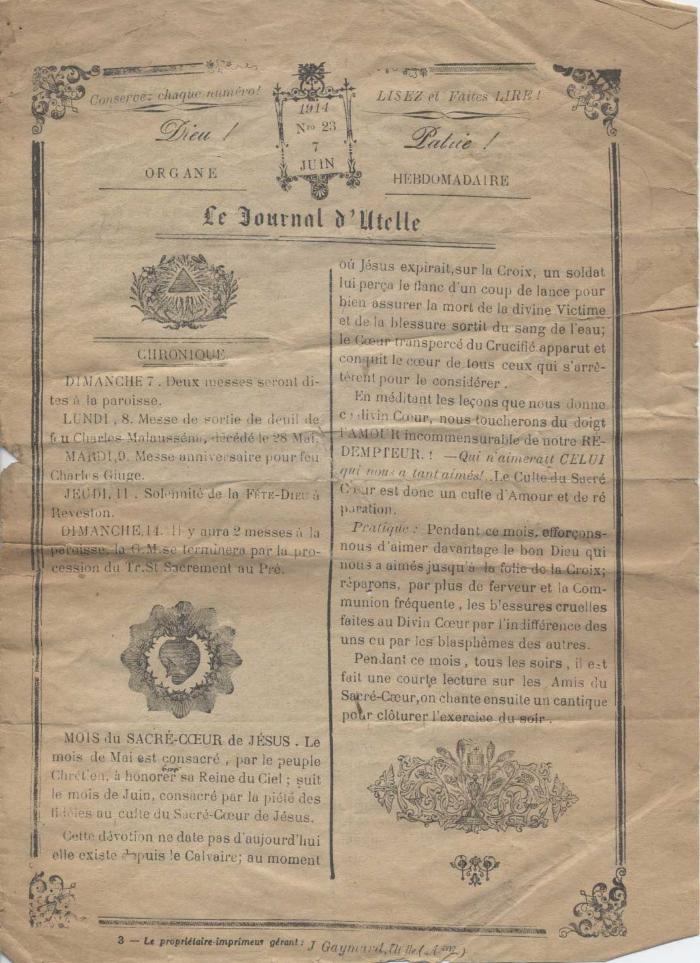 Conservez chaque numéro!
LISEZ et Faites LIRE!
1914
Nro 23
7
JUIN
Dieu!
Patrie!
ORGANE
HEBDOMADAIRE
Le Journal d'Utelle
CHRONIQUE
DIMANCHE 7. Deux messes seront di-
tes à la paroisse.
LUNDI, 8. Messe de sortie de deuil de
feu Charles Malausséna, décédé le 28 Mai.
MARDI, 9. Messe anniversaire pour feu
Charles Giuge.
JEUDI, 11. Solennité de la FÊTE-DIEU à
Reveston.
DIMANCHE, 14. Il y aura 2 messes à la
paroisse, la G.M. se terminera par la pro-
cession du Tr. St Sacrement au Pré.
MOIS du SACRÉ-CŒUR de JÉSUS. Le
mois de Mai est consacré, par le peuple
Chrétien, à honorer sa Reine du Ciel; suit
le mois de Juin, consacré par la piété des
fidèles au culte du Sacré-Cœur de Jésus.
Cette dévotion ne date pas d'aujourd'hui
elle existe depuis le Calvaire; au moment
où Jésus expirait, sur la Croix, un soldat
lui perça le flanc d'un coup de lance pour
bien assurer la mort de la divine Victime
et de la blessure sortit du sang de l'eau;
le Cœur transpercé du Crucifié apparut et
conquit le cœur de tous ceux qui s'arrê-
tèrent pour le considérer.
En méditant les leçons que nous donne
ce divin Cœur, nous toucherons du doigt
l'AMOUR incommensurable de notre RÉ-
DEMPTEUR.! —Qui n'aimerait CELUI
qui nous a tant aimés! .Le Culte du Sacré
Cœur est donc un culte d'Amour et de ré
paration.
Pratique: Pendant ce mois, efforçons-
nous d'aimer davantage le bon Dieu qui
nous a aimés jusqu'à la folie de la Croix;
réparons, par plus de ferveur et la Com-
munion fréquente, les blessures cruelles
faites au Divin Cœur par l'indifférence des
uns ou par les blasphèmes des autres.
Pendant ce mois, tous les soirs, il est
fait une courte lecture sur les Amis du
Sacré-Cœur, on chante ensuite un cantique
pour clôturer l'exercice du soir.
3 — Le propriétaire-imprimeur gérant: J Gaymard, Utelle (A.M.)